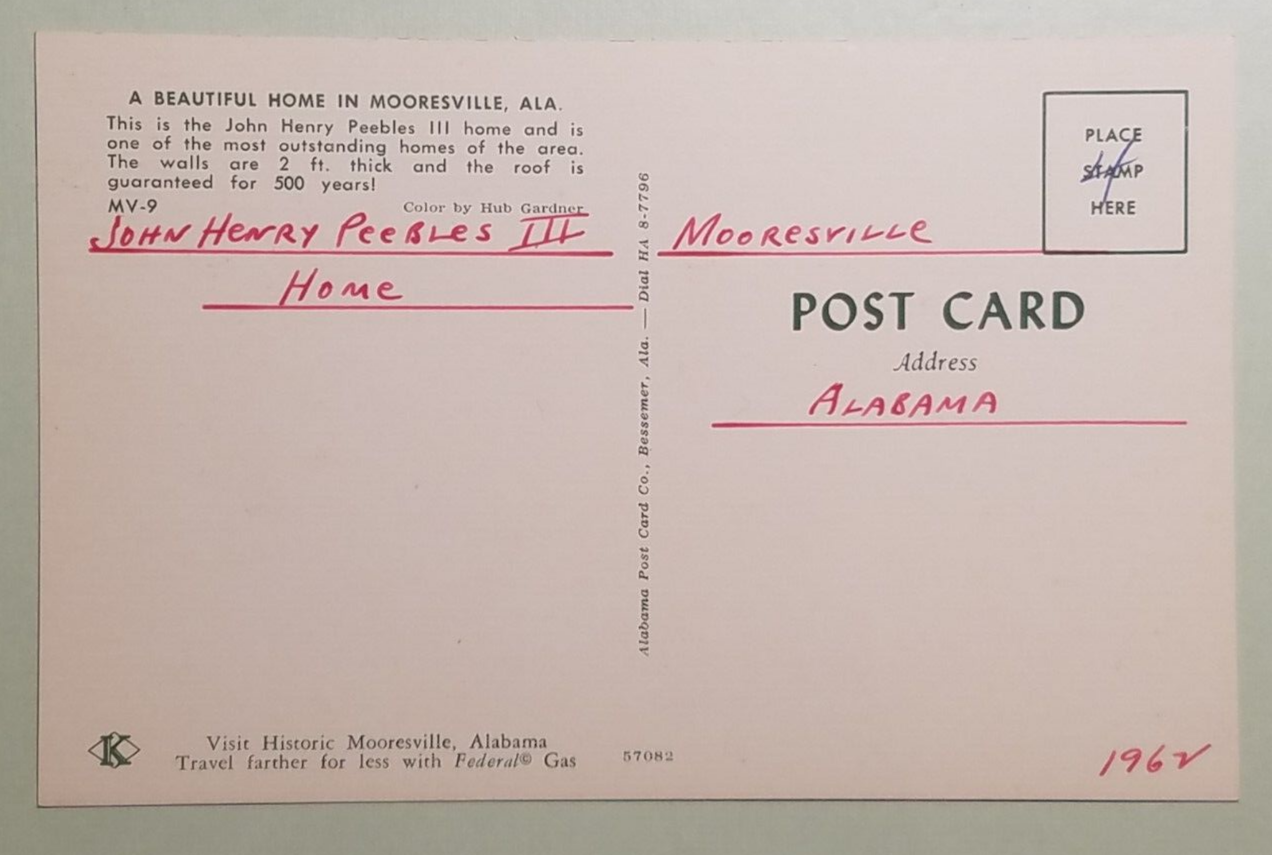 A BEAUTIFUL HOME IN MOORESVILLE, ALA.
This is the John Henry Peebles III home and is
one of the most outstanding homes of the area.
The walls are 2 ft. thick and the roof is
guaranteed for 500 years!
MV-9
Color by Hub Gardner
JOHN HENRY PEEBLES III
HOME
Alabama Post Card Co., Bessemer, Ala. — Dial HA 8-7796
PLACE
STAMP
HERE
MOORESVILLE
POST CARD
Address
ALABAMA
K
Visit Historic Mooresville, Alabama
Travel farther for less with Federal© Gas
57082
1962